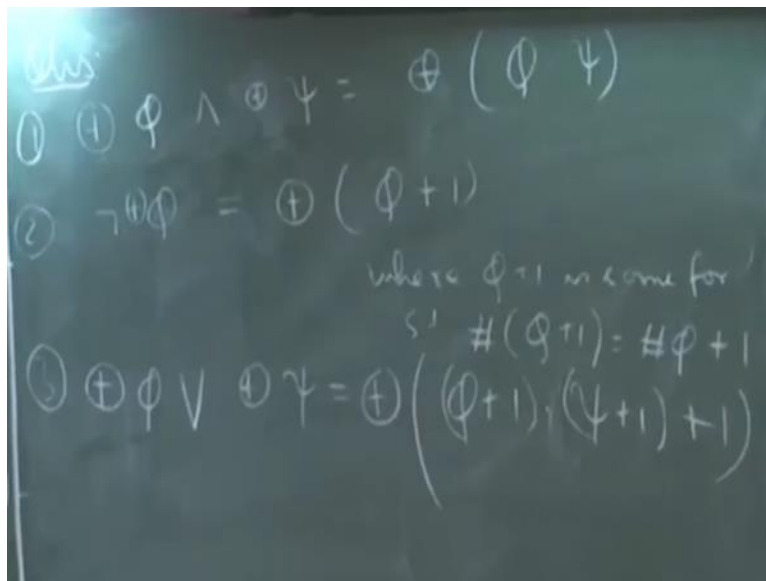 Obs:
① ⊕ φ ∧ ⊕ ψ = ⊕ ( φ ψ )
② ¬⊕φ = ⊕ ( φ + 1 )
where φ+1 is some for
st #(φ+1) = #φ + 1
③ ⊕ φ ∨ ⊕ ψ = ⊕ ( (φ+1) · (ψ+1) + 1 )